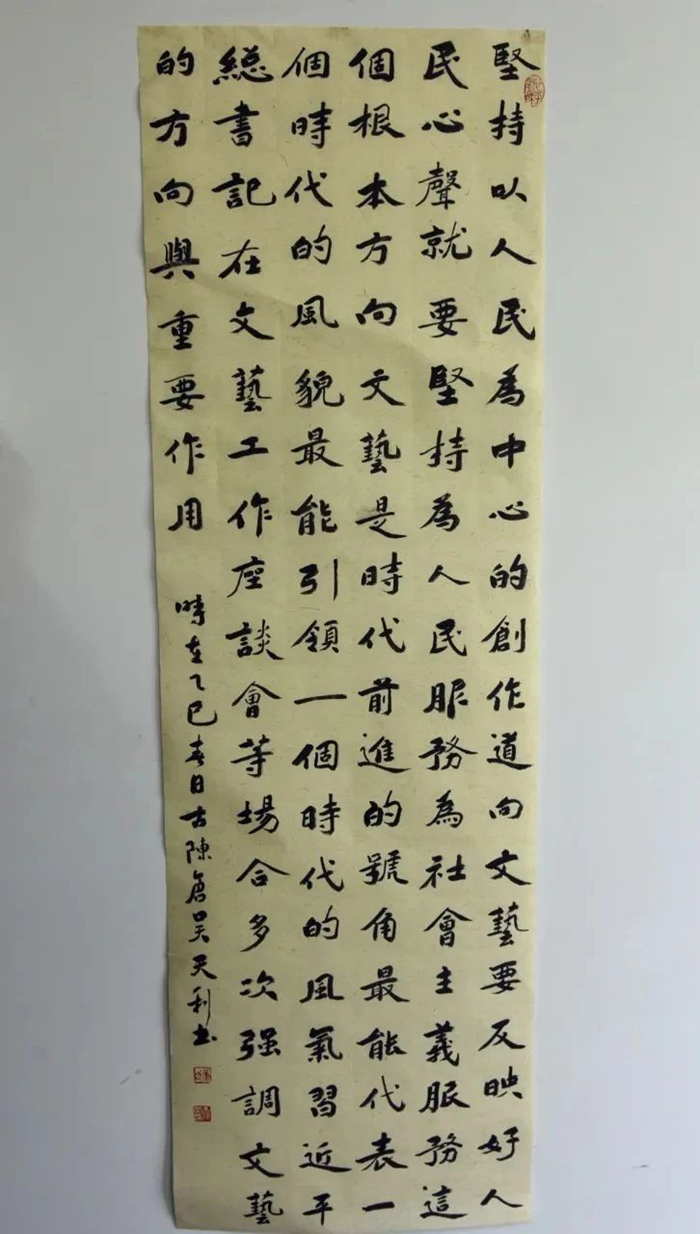 堅持以人民為中心的創作道向文藝要反映好人
民心聲就要堅持為人民服務為社會主義服務這
個根本方向文藝是時代前進的號角最能代表一
個時代的風貌最能引領一個時代的風氣習近平
總書記在文藝工作座談會等場合多次强調文藝
的方向與重要作用
時在乙巳春日古陳倉吴天利书